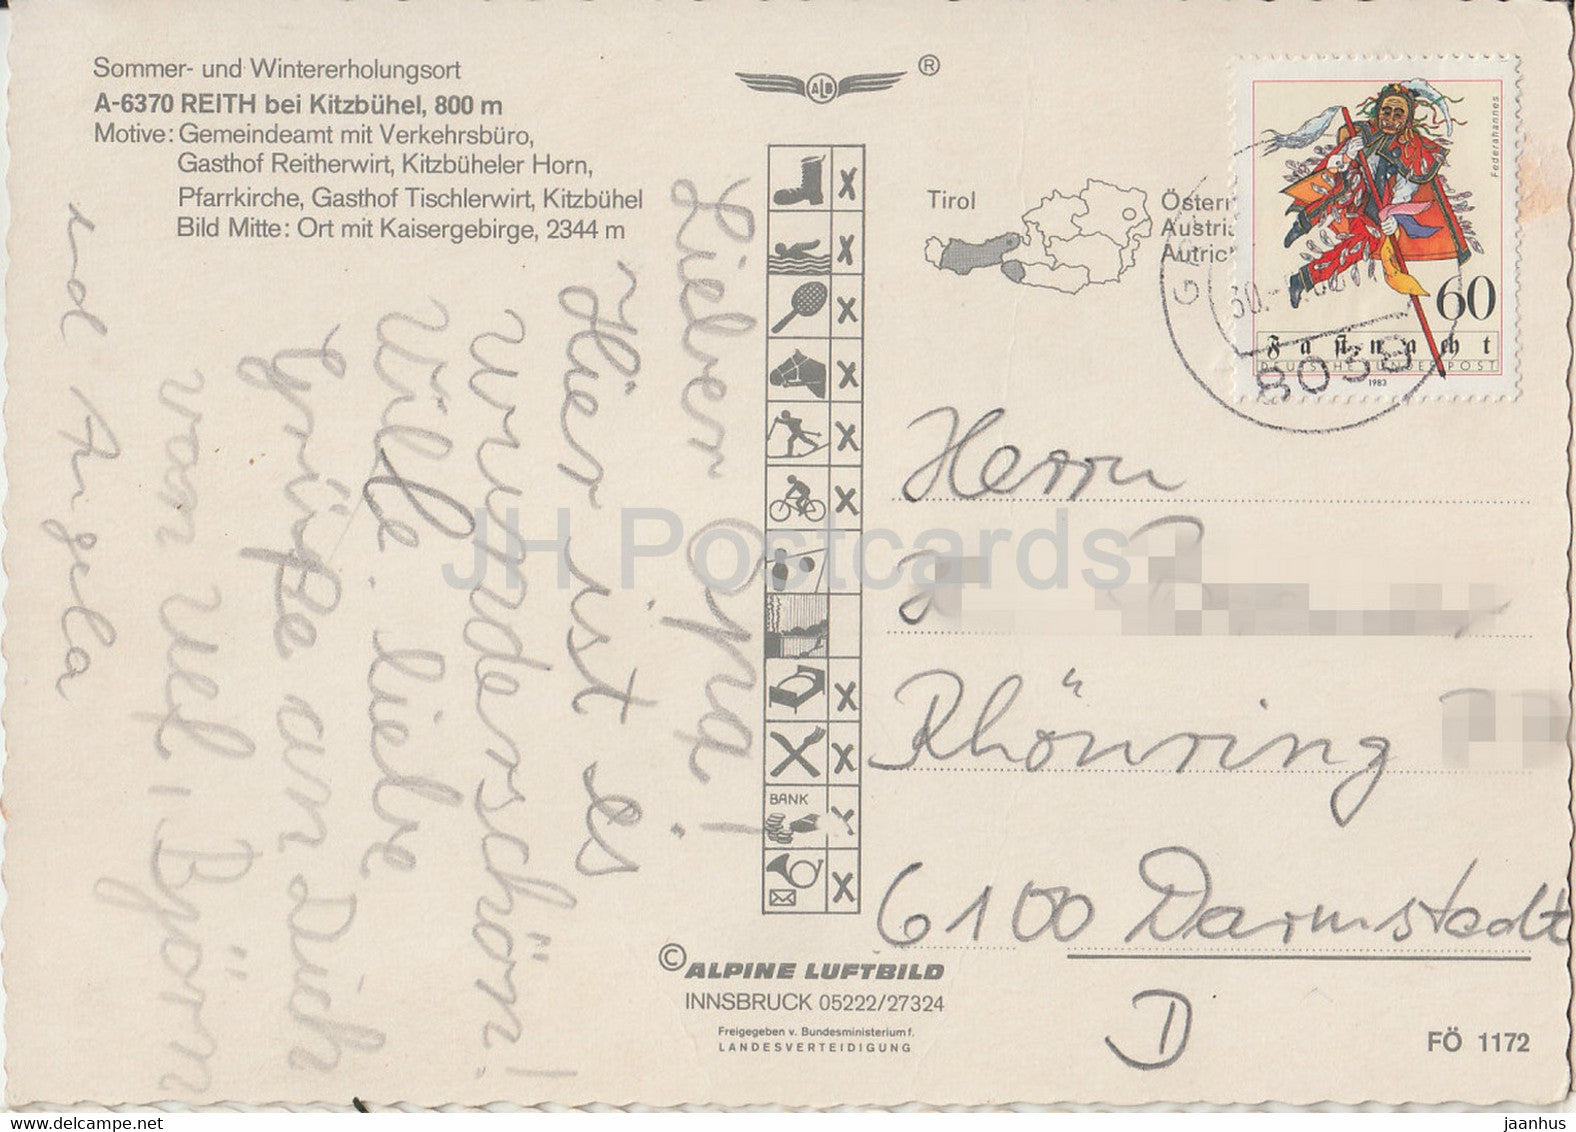 Sommer- und Wintererholungsort
A-6370 REITH bei Kitzbühel, 800 m
Motive: Gemeindeamt mit Verkehrsbüro,
Gasthof Reitherwirt, Kitzbüheler Horn,
Pfarrkirche, Gasthof Tischlerwirt, Kitzbühel
Bild Mitte: Ort mit Kaisergebirge, 2344 m
Lieber Opa!
Hier ist es
wunderschön!
liebe
Grüße an Dich
von Uel, Björn
und Angela
ALB ®
BANK
Tirol
Österr
Austria
Autric
Federahannes
60
Fastnacht
DEUTSCHE BUNDESPOST
1983
8039
Herrn
Rhönring
6100 Darmstadt
D
© ALPINE LUFTBILD
INNSBRUCK 05222/27324
Freigegeben v. Bundesministerium f.
LANDESVERTEIDIGUNG
FÖ 1172
JH Postcards
www.delcampe.net
jaanhus